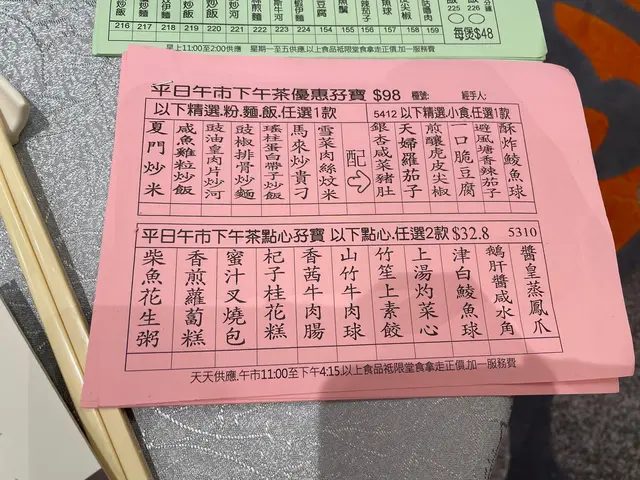 炒飯
炒麵
伊麵
炒飯
炒飯
炒河
煎麵
牛河
伊麵
豆腐
魚鬚
辣茄子
魚球
尖椒
咕嚕肉
216 217 218 219 220 221 222 223 224 154 155 156 157 158 159
225 226
每煲$48
早上11:00至2:00供應 星期一至五供應,以上食品祗限堂食拿走正價,加一服務費
平日午市下午茶優惠孖寶 $98 檯號: 經手人:
以下精選.粉.麵.飯.任選1款
5412 以下精選.小食.任選1款
夏門炒米
咸魚雞粒炒飯
豉油皇肉片炒河
豉椒排骨炒麵
瑤柱蛋白帶子炒飯
馬來炒貴刁
雪菜肉絲炆米
配
銀杏咸菜豬肚
天婦羅茄子
煎釀虎皮尖椒
一口脆豆腐
避風塘香辣茄子
酥炸鯪魚球
平日午市下午茶點心孖寶 以下點心.任選2款 $32.8 5310
柴魚花生粥
香煎蘿蔔糕
蜜汁叉燒包
杞子桂花糕
香茜牛肉腸
山竹牛肉球
竹笙上素餃
上湯灼菜心
津白鯪魚球
鵝肝醬咸水角
醬皇蒸鳳爪
天天供應.午市11:00至下午4:15.以上食品祗限堂食拿走正價.加一服務費